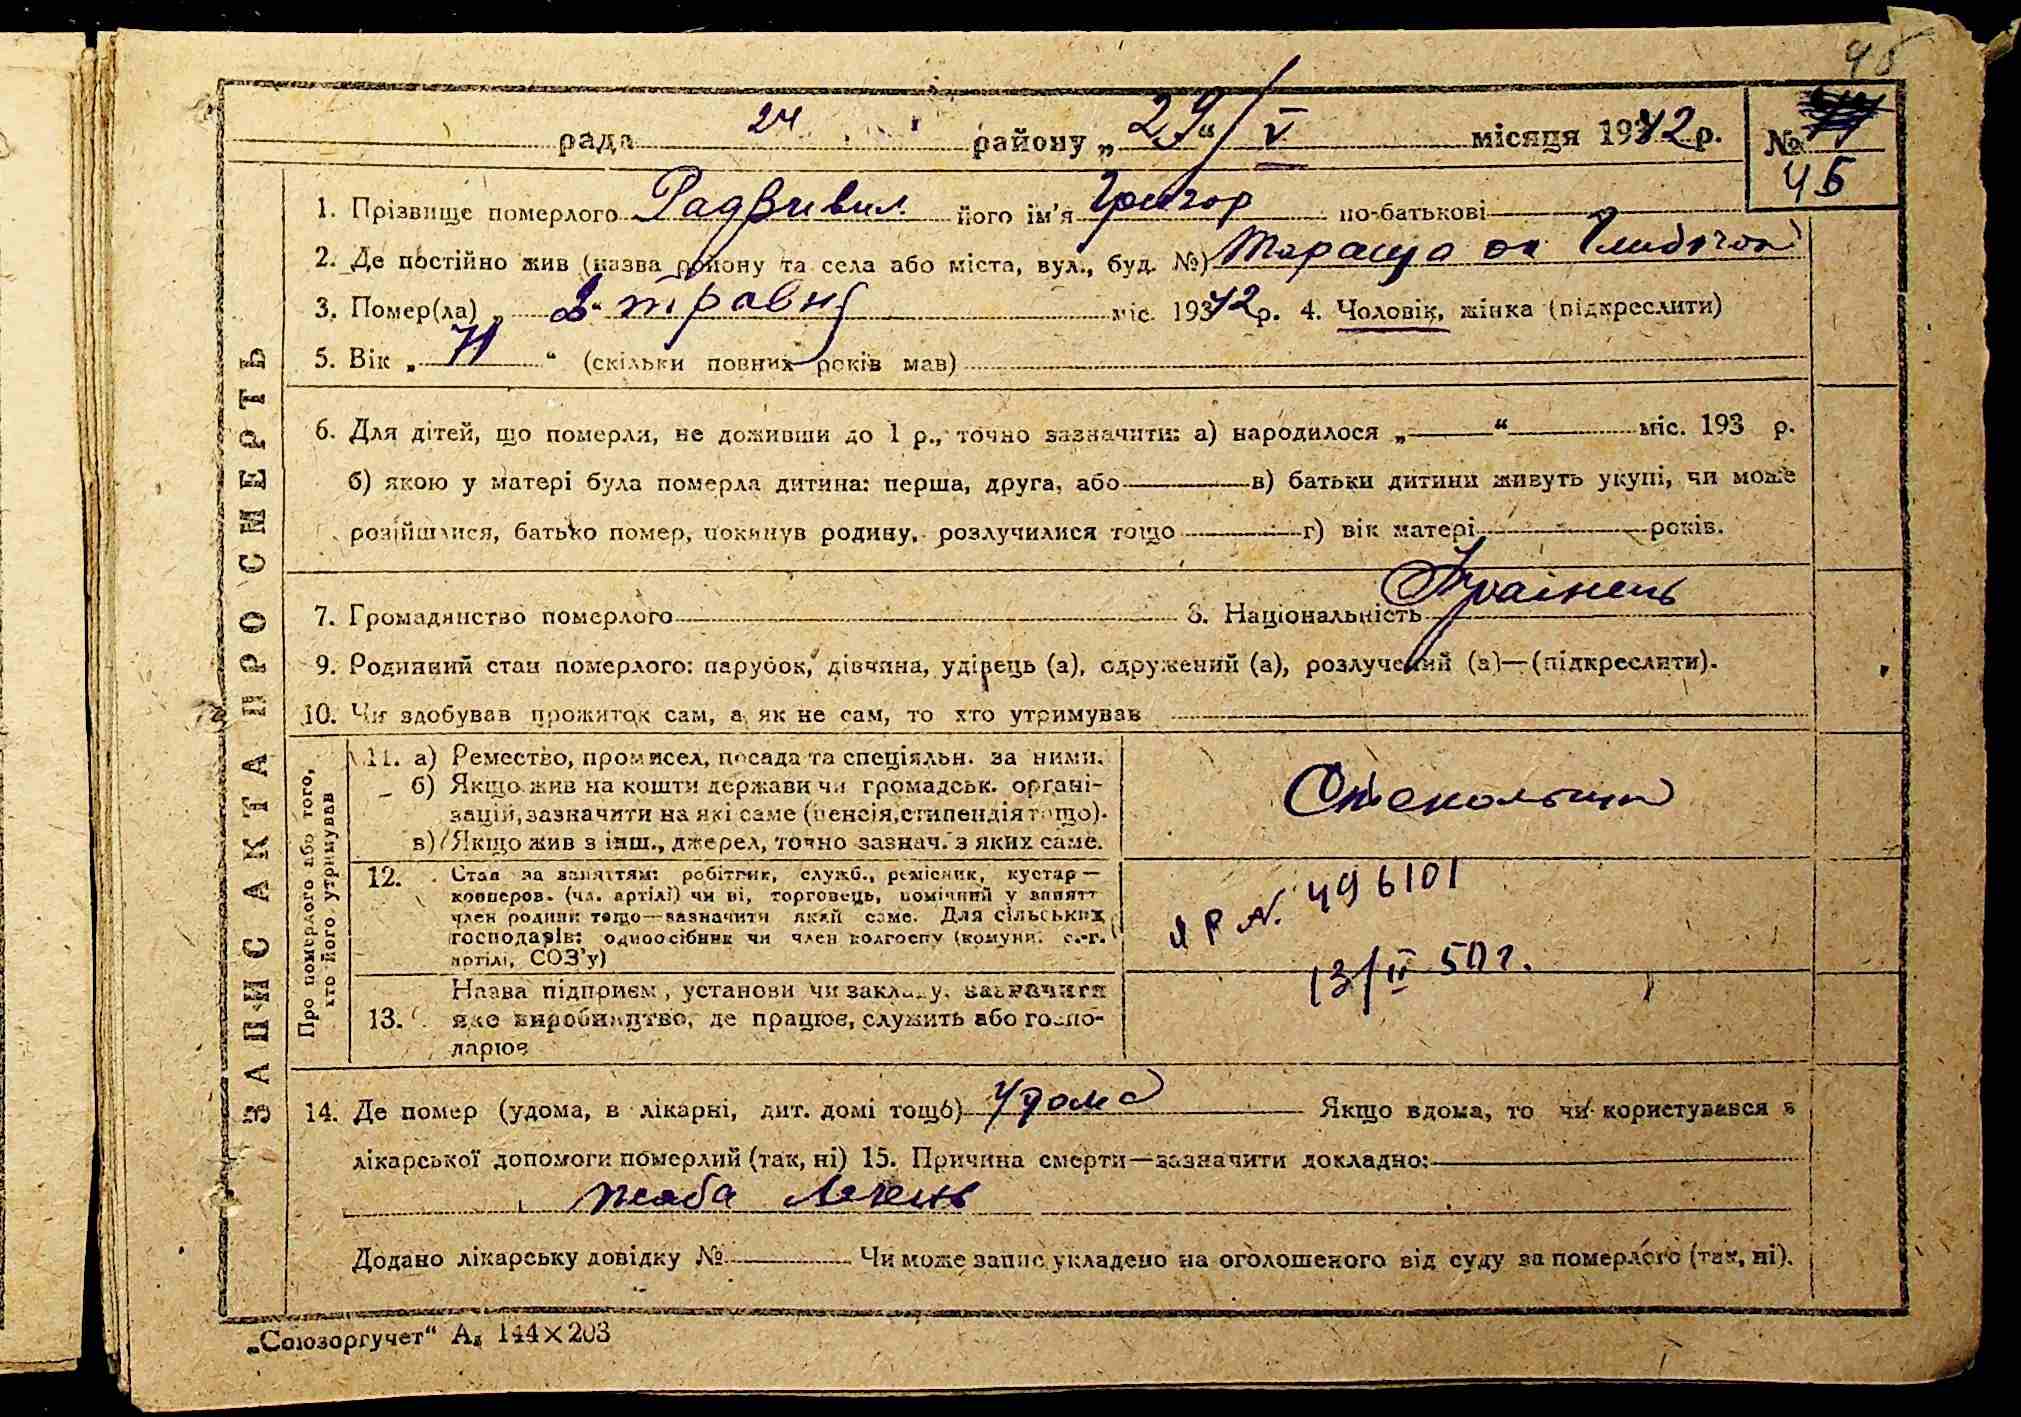 46
рада 24 району „29“/V місяця 1942 р. №
45
1. Прізвище померлого Радзивил його ім'я Григор по-батькові
2. Де постійно жив (назва району та села або міста, вул., буд. №) Тараща
3. Помер(ла) „2“ травня міс. 1942 р. 4. Чоловік, жінка (підкреслити)
5. Вік „71“ (скільки повних років мав)
6. Для дітей, що померли, не доживши до 1 р., точно зазначити: а) народилося „ “ міс. 193 р.
б) якою у матері була померла дитина: перша, друга, або в) батьки дитини живуть укупі, чи може
розійшлися, батько помер, покинув родину, розлучилися тощо г) вік матері років.
7. Громадянство померлого 8. Національність Українець
9. Родинний стан померлого: парубок, дівчина, удівець (а), одружений (а), розлучений (а)—(підкреслити).
10. Чи здобував прожиток сам, а як не сам, то хто утримував
ЗАПИС АКТА ПРО СМЕРТЬ
Про померлого або того,
хто його утримував
11. а) Ремество, промисел, посада та спеціяльн. за ними.
б) Якщо жив на кошти держави чи громадськ. органі-
зацій, зазначити на які саме (пенсія, стипендія тощо).
в) Якщо жив з інш., джерел, точно зазнач. з яких саме.
Стекольщик
12. Стан за заняттям: робітник, служб., ремісник, кустар—
кооперов. (чл. артілі) чи ні, торговець, помічний у занятт
член родини тощо—зазначити який саме. Для сільських
господарів: одноосібник чи член колгоспу (комуни, с.-г.
артілі, СОЗ'у)
ЯР №. 496101
13/II 50 г.
13. Назва підприєм., установи чи закладу, зазначити
яке виробництво, де працює, служить або госпо-
дарює
14. Де помер (удома, в лікарні, дит. домі тощо) удома Якщо вдома, то чи користувався з
лікарської допомоги померлий (так, ні) 15. Причина смерти—зазначити докладно:
жаба
Додано лікарську довідку № Чи може запис укладено на оголошеного від суду за померлого (так, ні).
„Союзоргучет“ А₅ 144×203